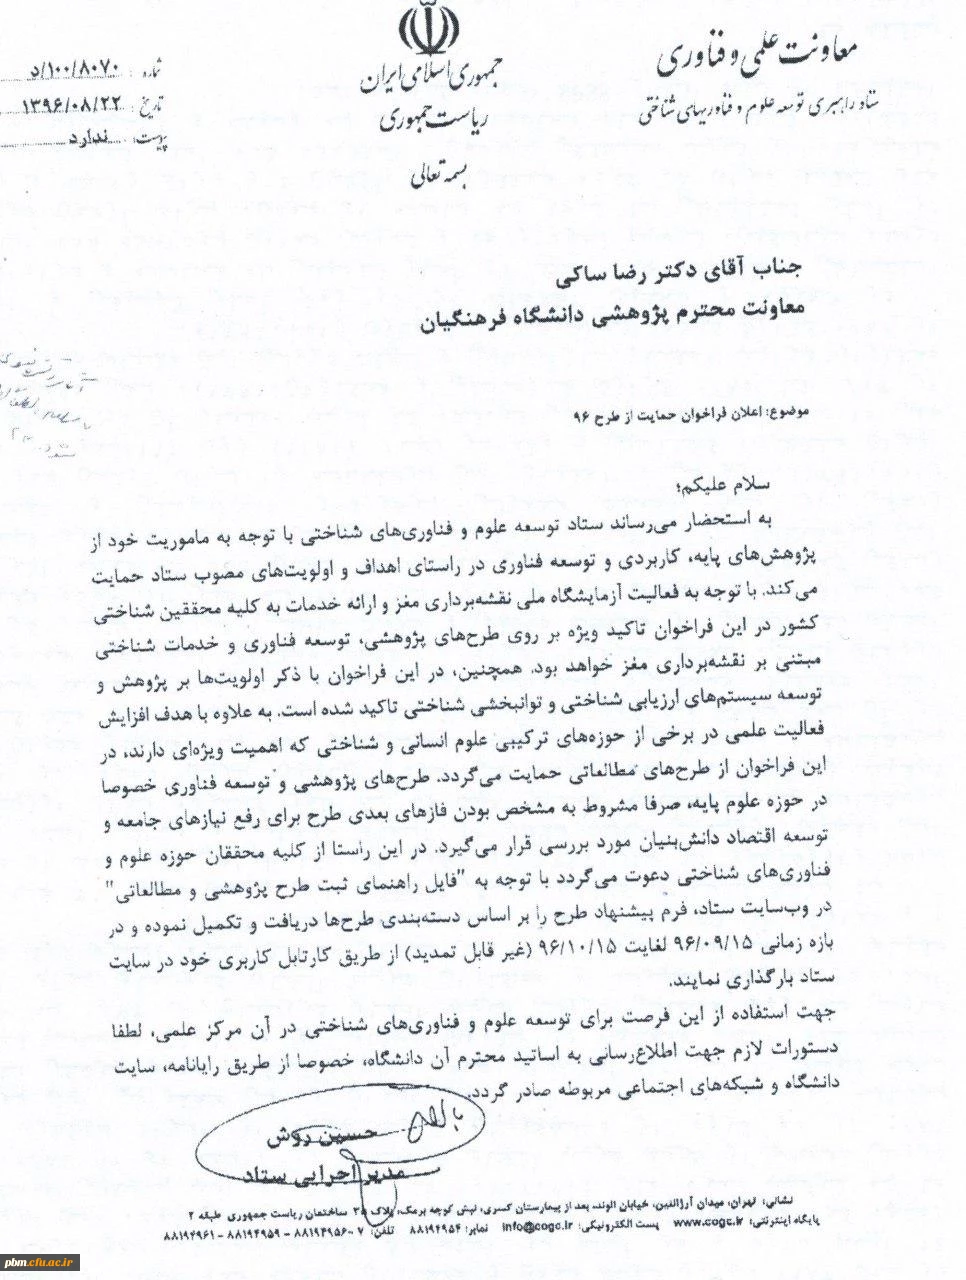 معاونت علمی و فناوری
ستاد راهبری توسعه علوم و فناوریهای شناختی
جمهوری اسلامی ایران
ریاست جمهوری
بسمه تعالی
شماره: ۱۰۰/۸۰۷۰/د
تاریخ: ۱۳۹۶/۰۸/۲۲
پیوست: ندارد
جناب آقای دکتر رضا ساکی
معاونت محترم پژوهشی دانشگاه فرهنگیان
موضوع: اعلان فراخوان حمایت از طرح ۹۶
سلام علیکم؛
به استحضار می‌رساند ستاد توسعه علوم و فناوری‌های شناختی با توجه به ماموریت خود از
پژوهش‌های پایه، کاربردی و توسعه فناوری در راستای اهداف و اولویت‌های مصوب ستاد حمایت
می‌کند. با توجه به فعالیت آزمایشگاه ملی نقشه‌برداری مغز و ارائه خدمات به کلیه محققین شناختی
کشور در این فراخوان تاکید ویژه بر روی طرح‌های پژوهشی، توسعه فناوری و خدمات شناختی
مبتنی بر نقشه‌برداری مغز خواهد بود. همچنین، در این فراخوان با ذکر اولویت‌ها بر پژوهش و
توسعه سیستم‌های ارزیابی شناختی و توانبخشی شناختی تاکید شده است. به علاوه با هدف افزایش
فعالیت علمی در برخی از حوزه‌های ترکیبی علوم انسانی و شناختی که اهمیت ویژه‌ای دارند، در
این فراخوان از طرح‌های مطالعاتی حمایت می‌گردد. طرح‌های پژوهشی و توسعه فناوری خصوصا
در حوزه علوم پایه، صرفا مشروط به مشخص بودن فازهای بعدی طرح برای رفع نیازهای جامعه و
توسعه اقتصاد دانش‌بنیان مورد بررسی قرار می‌گیرد. در این راستا از کلیه محققان حوزه علوم و
فناوری‌های شناختی دعوت می‌گردد با توجه به "فایل راهنمای ثبت طرح پژوهشی و مطالعاتی"
در وب‌سایت ستاد، فرم پیشنهاد طرح را بر اساس دسته‌بندی طرح‌ها دریافت و تکمیل نموده و در
بازه زمانی ۹۶/۰۹/۱۵ لغایت ۹۶/۱۰/۱۵ (غیر قابل تمدید) از طریق کارتابل کاربری خود در سایت
ستاد بارگذاری نمایند.
جهت استفاده از این فرصت برای توسعه علوم و فناوری‌های شناختی در آن مرکز علمی، لطفا
دستورات لازم جهت اطلاع‌رسانی به اساتید محترم آن دانشگاه، خصوصا از طریق رایانامه، سایت
دانشگاه و شبکه‌های اجتماعی مربوطه صادر گردد.
حسین روش
مدیر اجرایی ستاد
نشانی: تهران، میدان آرژانتین، خیابان الوند، بعد از بیمارستان کسری، نبش کوچه برمک، پلاک ۳۰ ساختمان ریاست جمهوری طبقه ۲
پایگاه اینترنتی: www.cogc.ir پست الکترونیکی: info@cogc.ir نمابر: ۸۸۱۹۴۹۵۴ تلفن: ۷ -۸۸۱۹۴۹۵۶ - ۸۸۱۹۴۹۵۹ - ۸۸۱۹۴۹۶۱
pbm.cfu.ac.ir